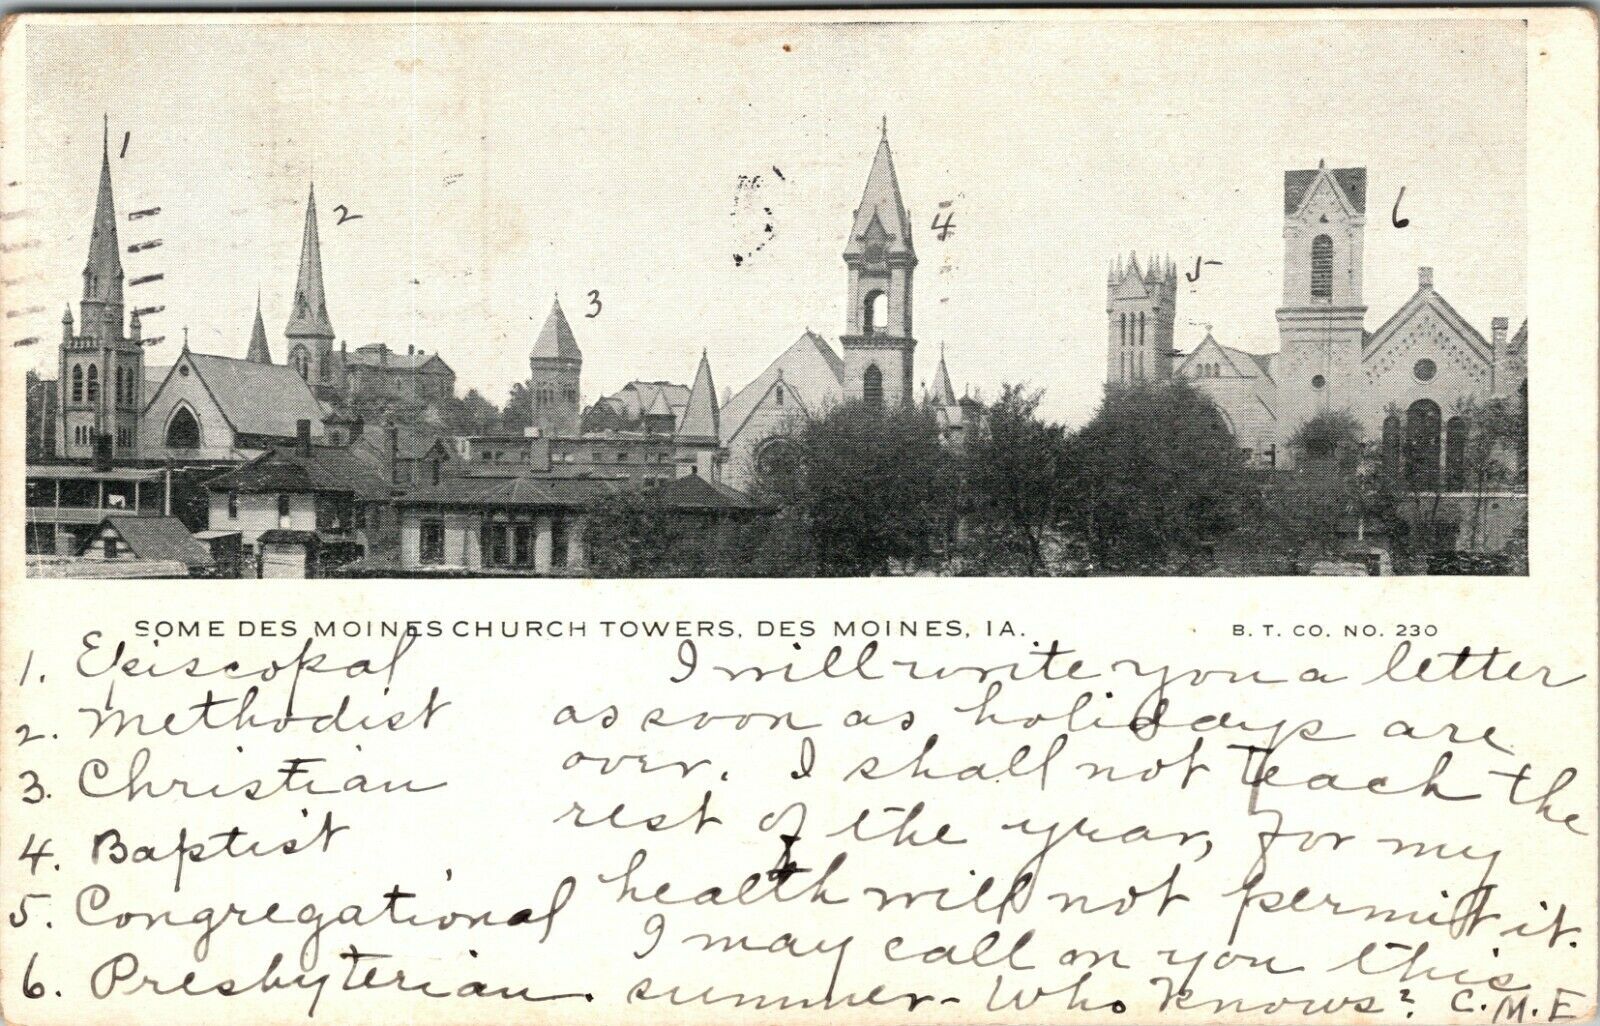 1
2
3
4
5
6
SOME DES MOINES CHURCH TOWERS, DES MOINES, IA.
B. T. CO. NO. 230
1. Episcopal
2. Methodist
3. Christian
4. Baptist
5. Congregational
6. Presbyterian.
I will write you a letter
as soon as holidays are
over. I shall not teach the
rest of the year, for my
health will not permit it.
I may call on you this
summer - Who Knows? C.M.E